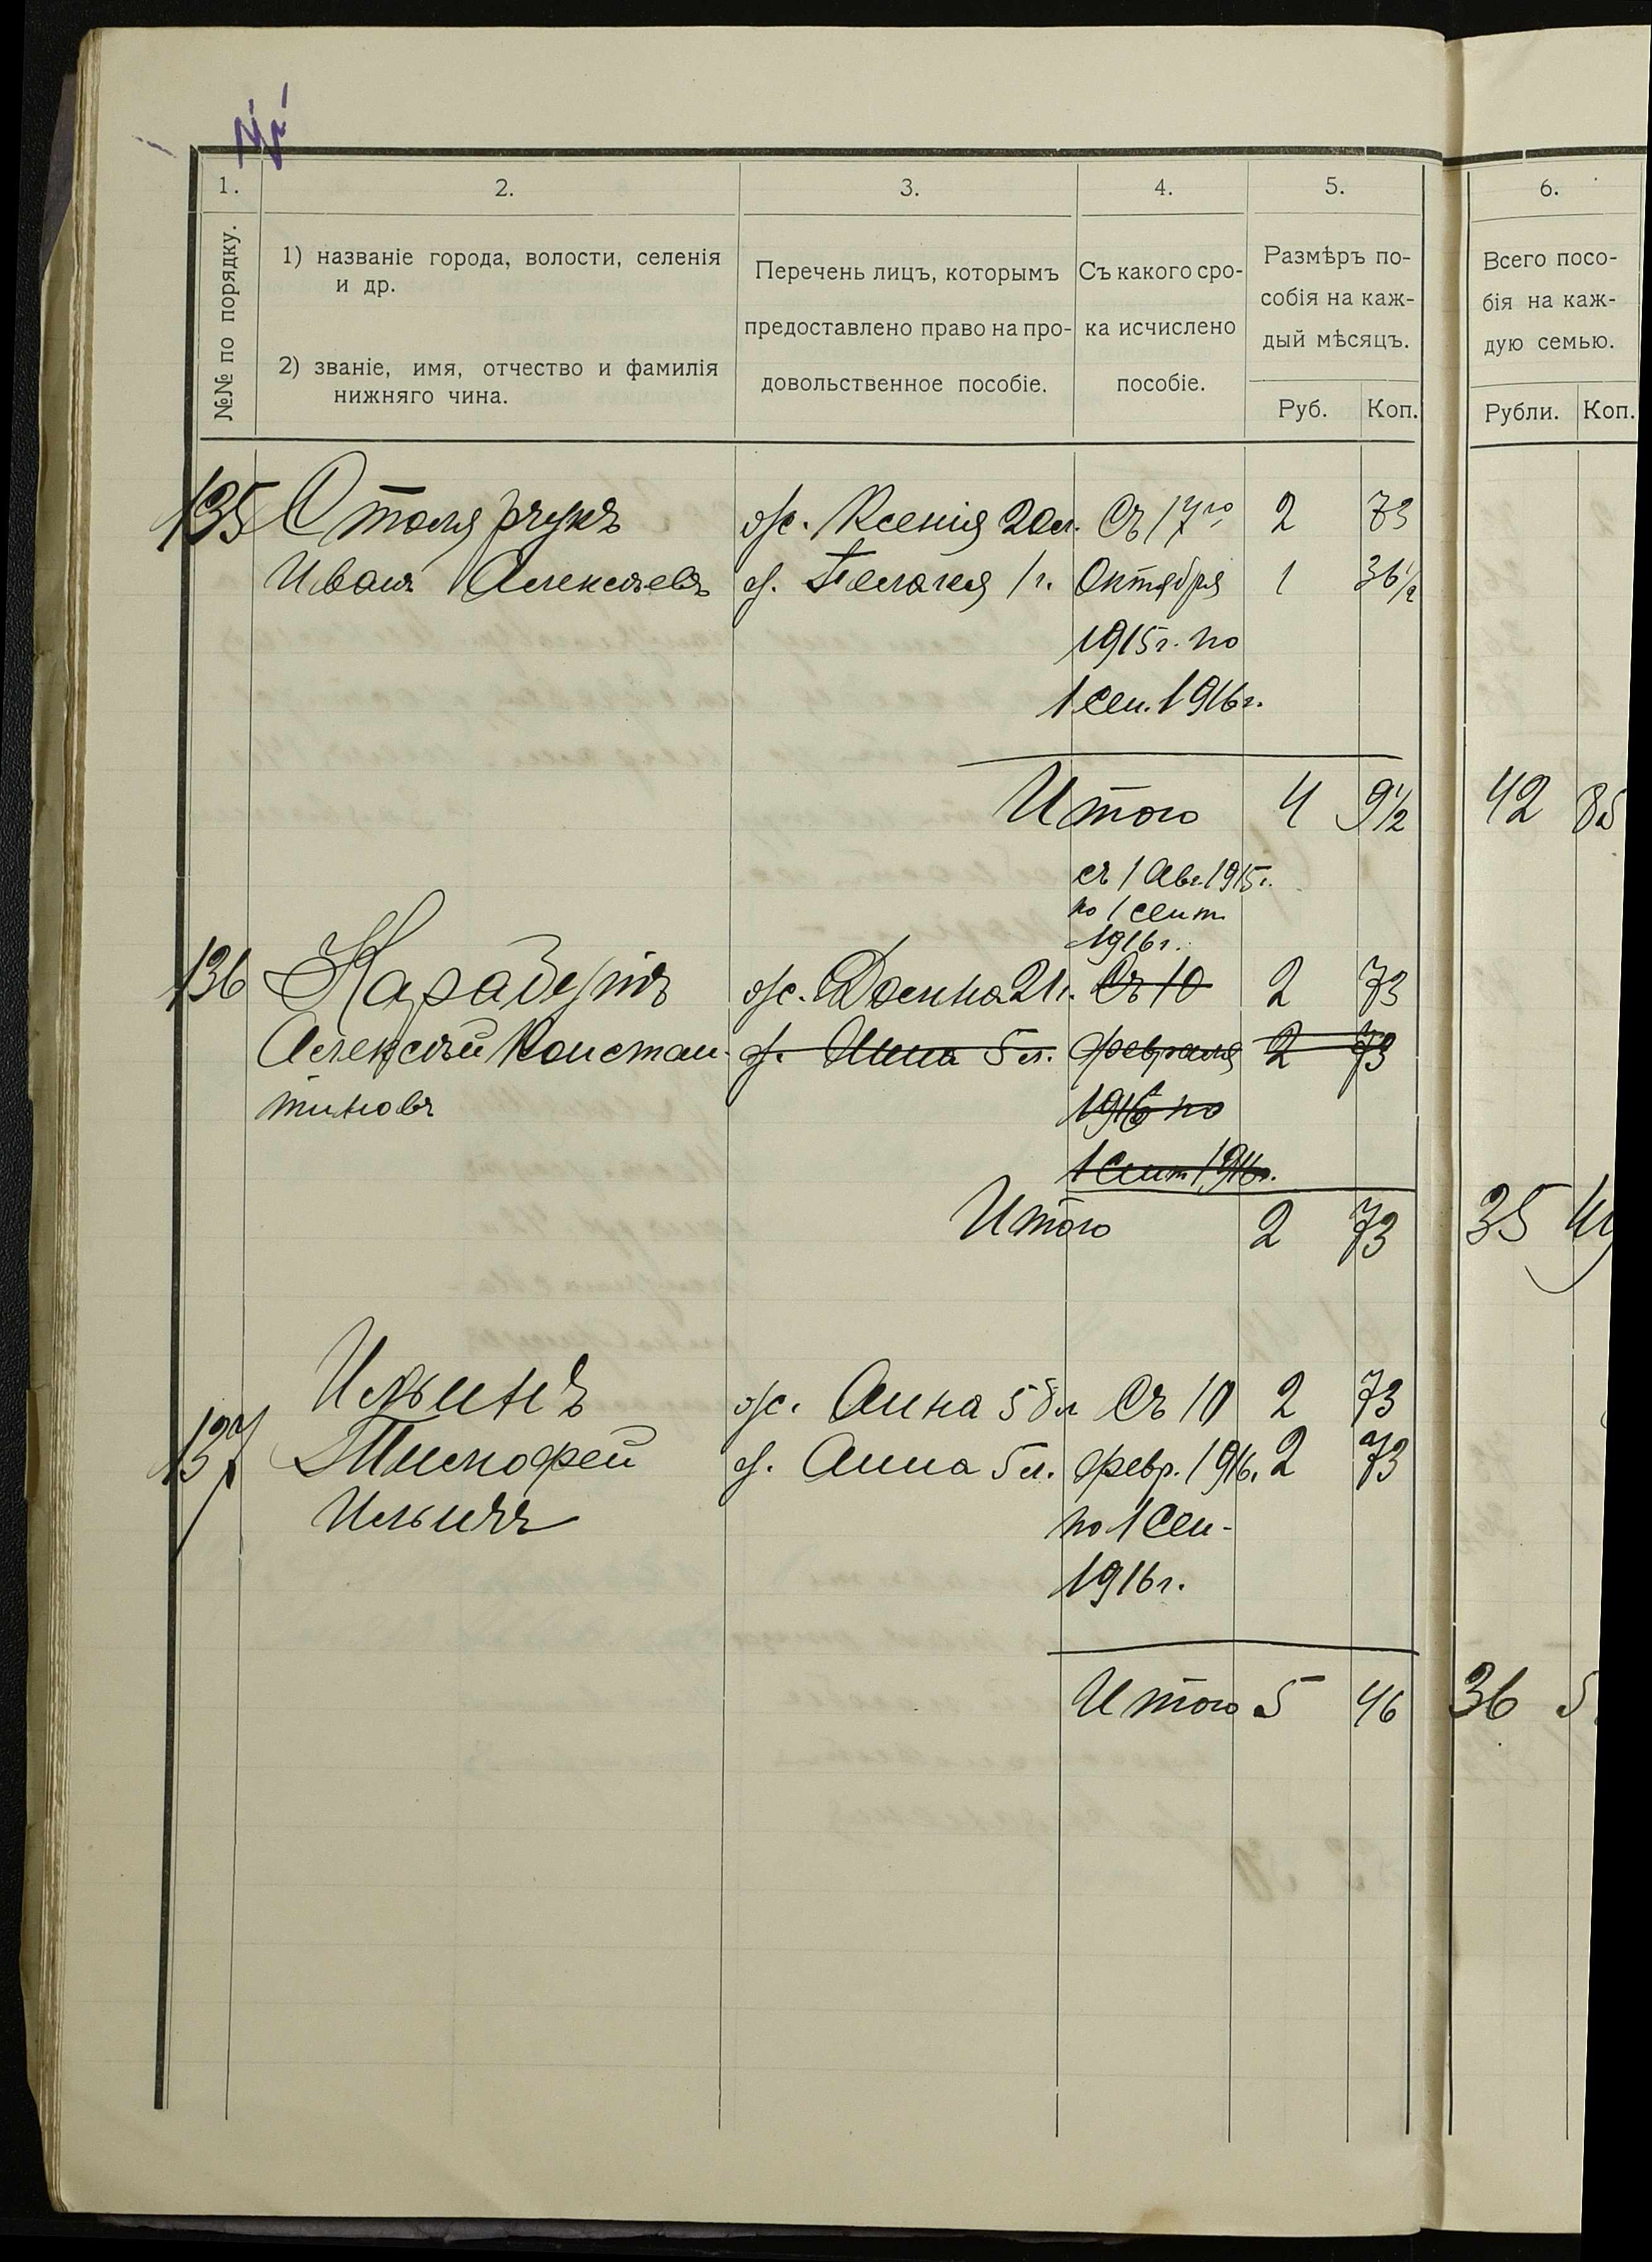 1. 2. 3. 4. 5. 6.
№№ по порядку.
1) названіе города, волости, селенія
и др.
2) званіе, имя, отчество и фамилія
нижняго чина.
Перечень лицъ, которымъ
предоставлено право на про-
довольственное пособіе.
Съ какого сро-
ка исчислено
пособіе.
Размѣръ по-
собія на каж-
дый мѣсяцъ.
Руб. Коп.
Всего посо-
бія на каж-
дую семью.
Рубли. Коп.
135 Столярчукъ ж. Ксенія 20л. Съ 17го 2 73
Иванъ Алексѣевъ д. Пелагея 1 г. Октября 1 36 1/2
1915 г. по
1 Сен. 1916 г.
Итого 4 9 1/2 42 85
съ 1 Авг. 1915 г.
по 1 сент.
1916 г.
136 ж. Домна 21 г. Съ 10 2 73
Алексѣй Констан- д. Анна 5 л. февраля 2 73
тиновъ 1916 по
1 Сент 1916 г.
Итого 2 73 35
Ильинъ ж. Анна 58 л Съ 10 2 73
137 Тимофей д. Анна 5 л. февр. 1916. 2 73
Ильичъ по 1 Сен-
1916 г.
Итого 5 46 36 5